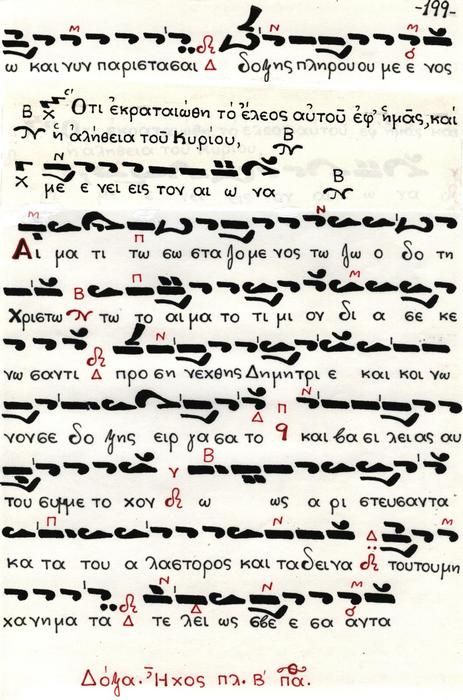 -199-
ω και νυν παριστασαι Δ δοξης πληρουου με ε νος
Ὅτι ἐκραταιώθη τὸ ἔλεος αὐτοῦ ἐφ' ἡμᾶς, και
Β ἡ ἀλήθεια τοῦ Κυρίου,
Β
με ε νει εις τον αι ω να
Β
Αι μα τι τω σω σταζομε νος τω ζω ο δο τη
Χριστω τω το αι μα το τι μι ον δι α σε κε
νω σαντι Δ προ ση νεχθης Δημητρι ε και κοι νω
νον σε δο ξης ειρ γα σα το και βα σι λειας αυ
του συμμε το χον ω ως α ρι στευσαντα
κα τα του α λαστορος και τα δει να τουτου μη
χανημα τα Δ τε λει ως σβε ε σα αντα
Δόξα. Ἦχος πλ. Β' πα.